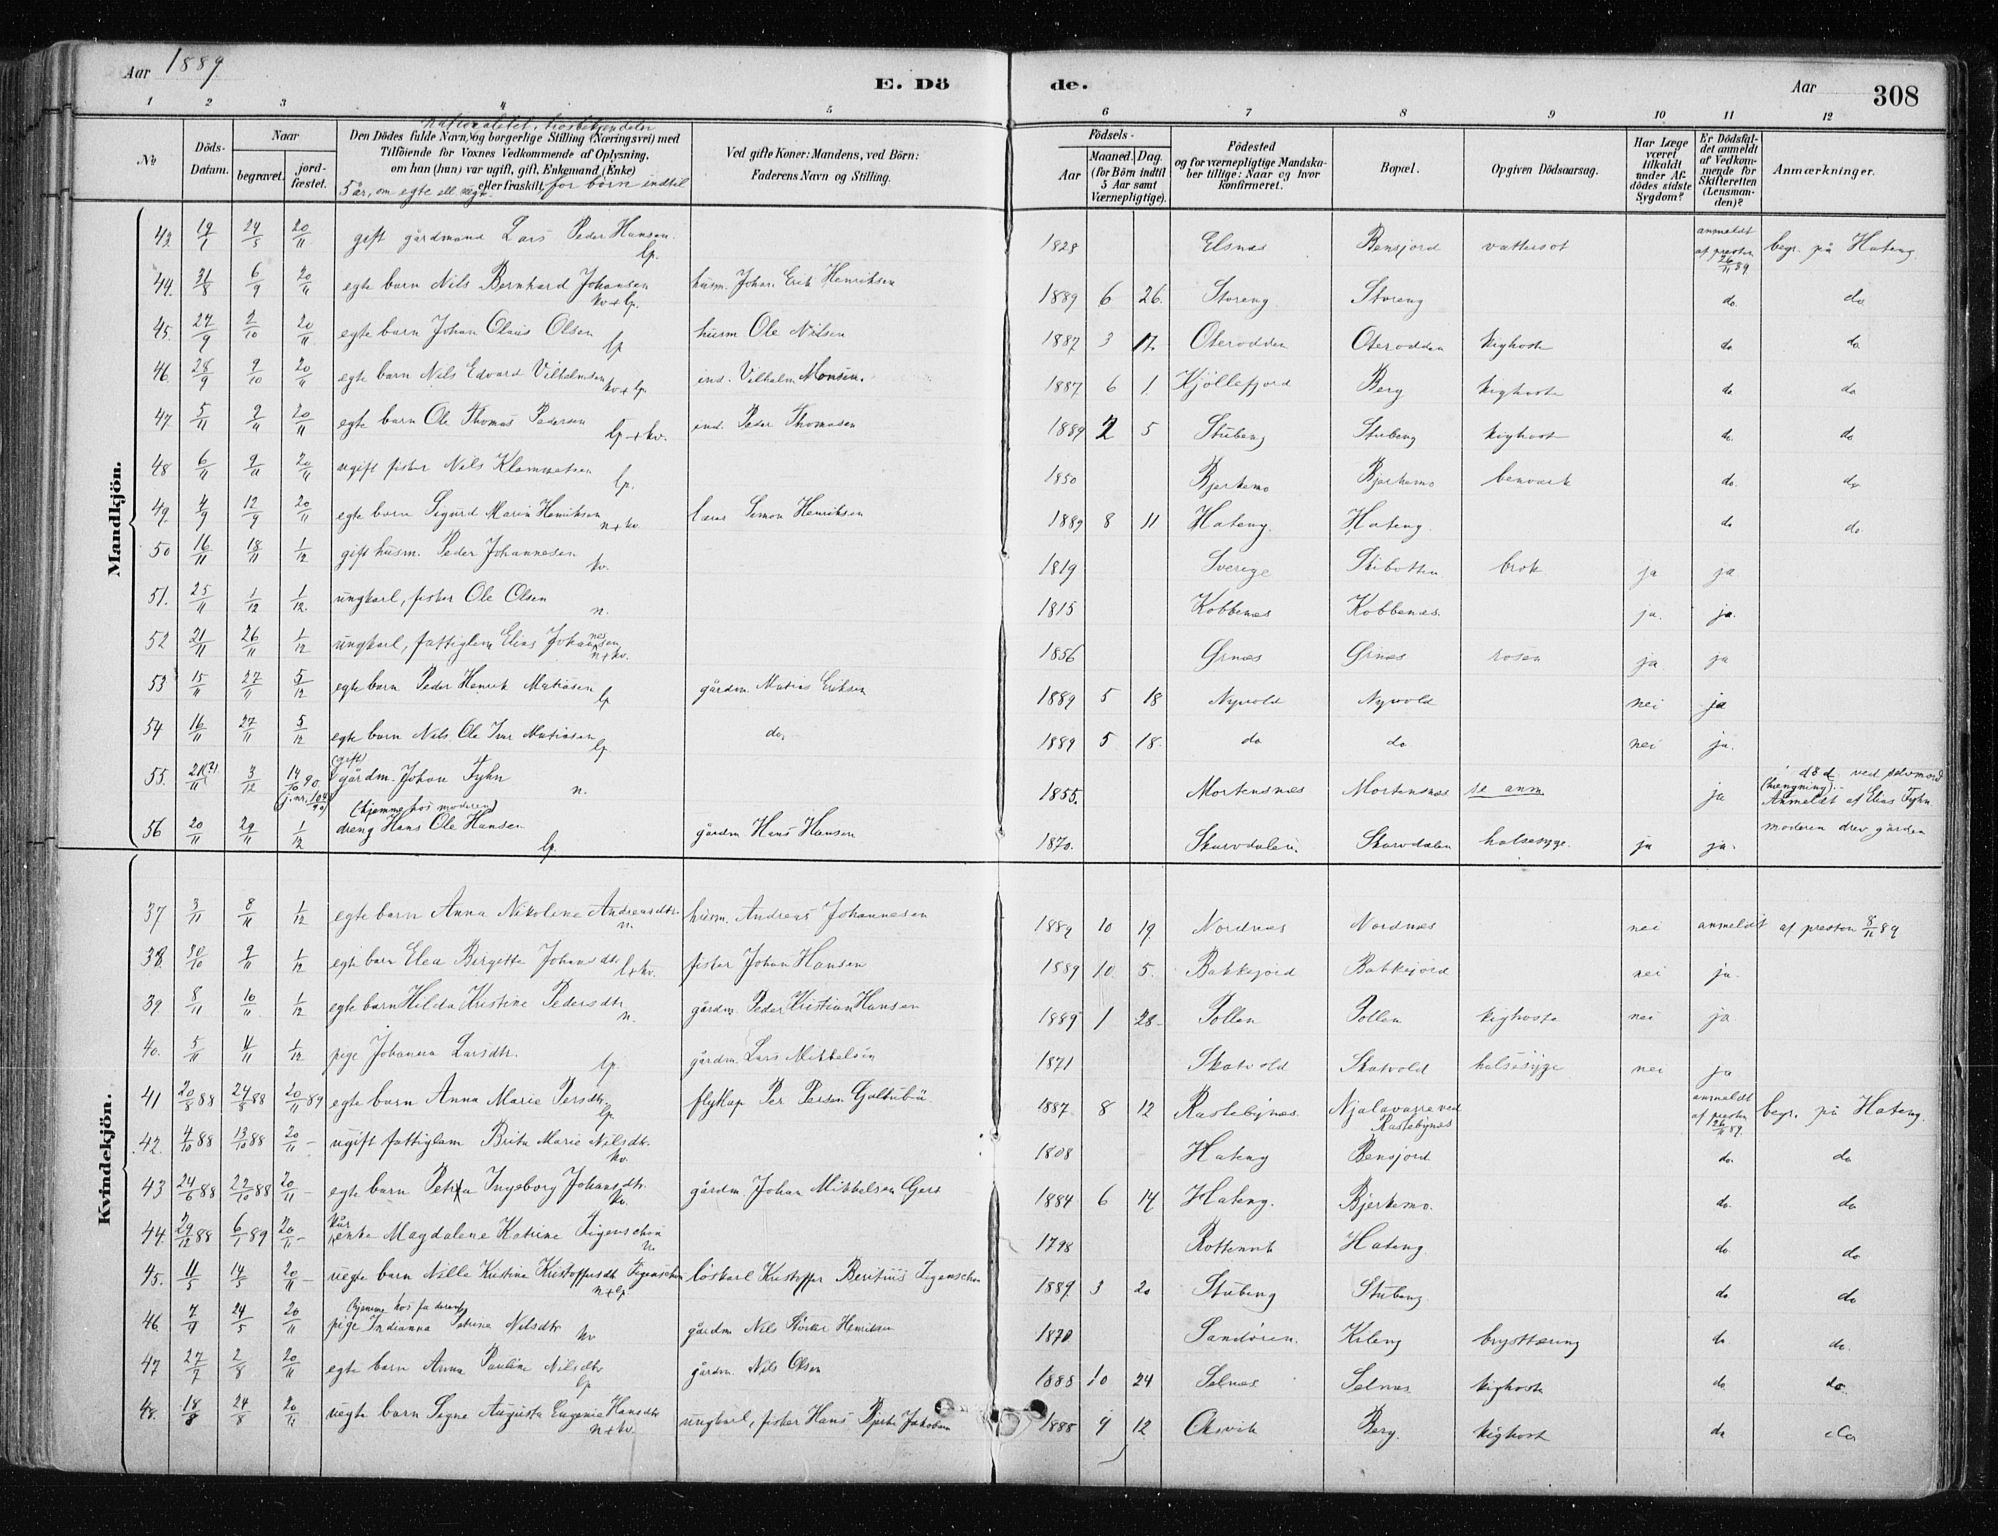 Aar 1889 E. Dö de. Aar 308
1 2 3 4 5 6 7 8 9 10 11 12
No Döds-Datum. Naar begravet. jord-fæstet. Den Dödes fulde Navn, og borgerlige Stilling (Næringsvei) med Tilföiende for Voxnes Vedkommende af Oplysning, om han (hun) var ugift, gift, Enkemand (Enke) eller fraskilt. for børn indtil 5 år, om egte ell. uegte. Ved gifte Koner: Mandens, ved Börn: Faderens Navn og Stilling. Födsels- Aar Maaned. Dag. (for Börn indtil 5 Aar samt Værnepligtige). Födested og for værnepligtige Mandska-ber tillige: Naar og hvor konfirmeret. Bopæl. Opgiven Dödsaarsag. Har Læge været tilkaldt under Af-dödes sidste Sygdom? Er Dödsfal-det anmeldt af Vedkom-mende for Skifteretten (Lensman-den)? Anmærkninger.
Mandkjön.
43 19/1 24/5 20/11 gift gårdmand Lars Peder Hansen lp. 1828 Elsnæs Bensjord vattersot anmeldt af presten 26/11 89 begr. på Hateng
44. 31/8 6/9 20/11 egte barn Nils Bernhard Johansen kv+lp. husm. Johan Erik Henriksen 1889 6 26. Storeng Storeng do. do
45. 27/9 2/10 20/11 egte barn Johan Olaus Olsen lp husm Ole Nilsen 1887 3 17. Oterodden Oterodden kighoste do do
46. 28/9 9/10 20/11 egte barn Nils Edvard Vilhelmsen kv+lp. ind. Vilhelm Monsen. 1887 6 1. Kjöllefjord Berg kighoste do do
47. 5/11 9/11 20/11 egte barn Ole Thomas Pedersen lp+kv. ind. Peder Thomasen 1889 2 5 Stubeng Stubeng kighost do. do
48 6/11 9/11 20/11 ugift fisker Nils Klemmetsen lp. 1850 Bjerkemo Bjerkemo benværk do. do
49. 4/9 12/9 20/11 egte barn Sigurd Marin Henriksen n+kv. lærer Simon Henriksen 1889 8 11 Hateng. Hateng. do do
50 16/11 18/11 1/12 gift husm. Peder Johannesen kv. 1819 Sverige Skibotten brok ja ja
51. 25/11 1/12 1/12. ungkarl, fisker Ole Olsen n. 1815 Kobbenæs Kobbenæs. ja. ja.
52 21/11 26/11 1/12 ungkarl, fattiglem Elias Johannessen n+kv. 1856 Grnæs Grnæs rosen ja ja
53 15/11 27/11 5/12 egte barn Peder Henrik Matiasen lp gårdm. Matias Eriksen 1889 5 18 Nyvold Nyvold nei ja
54 16/11 27/11 5/12 egte barn Nils Ole Ivar Matiasen lp do. 1889 5 18. do do nei ja.
55. 21(?)/11 3/12 14/10 90. (j.nr. 104/90) (gift) gårdm. Johan Fyhn n. 1855. Mortensnæs Mortensnæs se anm ja død ved selvmord (hængning). Anmeldt af Elias Fyhn
56 20/11 29/11 1/12 (hjemme hos moderen) dreng Hans Ole Hansen lp. gårdm Hans Hansen 1870. Skarvdalen. Skarvdalen halsesyge. ja ja. moderen drev gården
Kvindekjön.
37 3/11 8/11 1/12 egte barn Anna Nikoline Andreasdtr. n. husm. Andreas Johannesen 1889 10 19. Nordnæs Nordnæs nei anmeldt af presten 8/11 89
38. 30/10 9/11 1/12 egte barn Elea Bergette Johansdtr l+kv. fisker Johan Hansen 1889 10. 5. Bakkejord Bakkejord nei ja.
39 8/11 10/11 1/12 egte barn Hilda Kristine Pedersdtr. n. gårdm. Peder Kristian Hansen 1889 1 28. Pollen Pollen kighoste nei ja
40. 5/11 11/11 1/12 pige Johanna Larsdtr. lp gårdm. Lars Mikkelsen 1871 Skatvold Skatvold halsesyge nei ja
41 20/8 88 24/8 88 20/11 89 egte barn Anna Marie Persdtr. lp. flytlap Per Persen Galtubu 1887. 8 12 Rastebynæs. Njalavarre ved Rastebynæs anmeldt af presten 26/11 89. begr. på Hateng.
42. 4/10 88 13/10 88 20/11 - ugift fattiglem Brita Marie Nilsdtr. kv. 1808 Hateng Bensjord do. do
43 24/6 88 22/10 88 20/11 - egte barn Petra Ingeborg Johansdtr. kv. gårdm. Johan Mikkelsen Gers 1884 6 14 Hateng. Bjerkemo. do. do
44. 29/12 88 6/1 89 20/11 - kår enke Magdalene Katrine Figenschou n. 1798 Rottenvik Hateng. do do
45. 11/5 14/5 20/11 - uegte barn Nille Kristine Kristoffersdtr Figenschou n+lp løskarl Kristoffer Beritius Figenschou 1889 3 20 Stubeng Stubeng. do do
46 7/4 24/5 20/11 (hjemme hos faderen) pige Indianna Petrine Nilsdtr kv gårdm Nils Henriksen 1870 Sandören. Kileng brysttæring do do.
47 27/7 2/8 20/11 egte barn Anna Pauline Nilsdtr lp gårdm. Nils Olsen 1888 10 24 Selnæs Selnæs kighoste do do.
48. 18/8 24/8 20/11 uegte barn Signe Augusta Eugenie Hansdtr n+kv. ungkarl, fisker Hans Bjerke Jakobsen 1888 9 12 Oksvik Berg. kighost do do